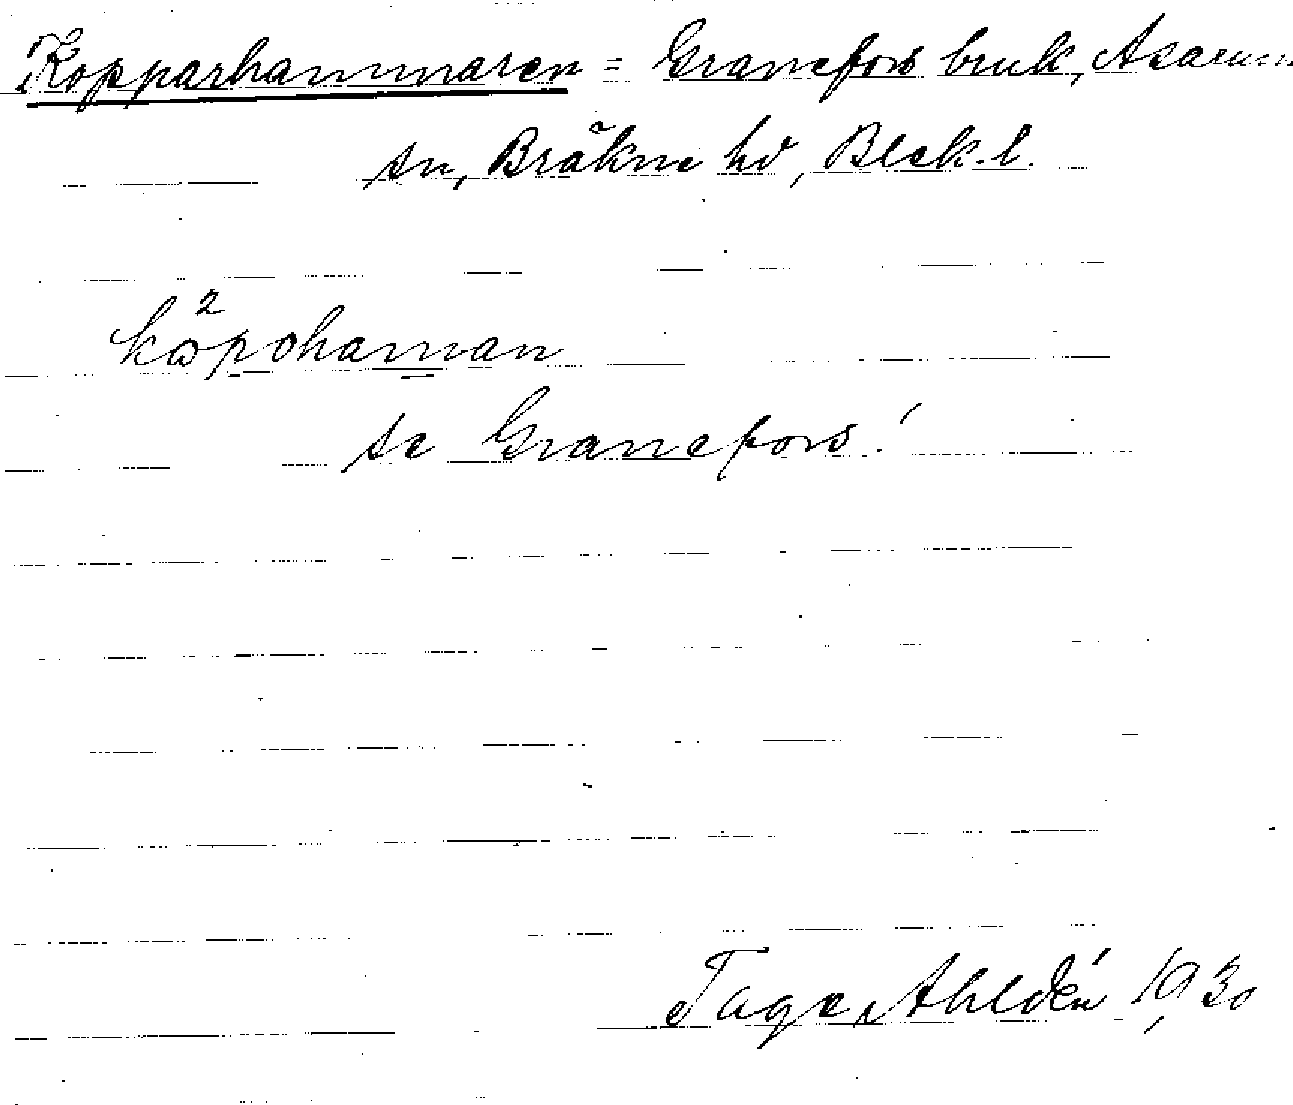 Kopparhammaren = Granefors bruk, Asarum
sn, Bräkne hd, Blek. l.
se Granefors!
Tage Ahldén 1930